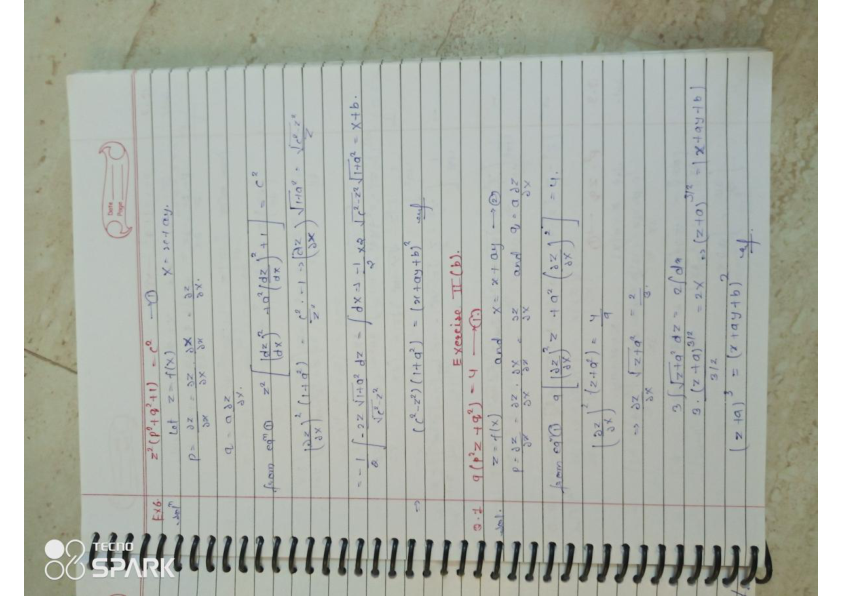 Date
Page
Ex6. z²(p²+q²+1) = c² —①
Solⁿ Let z = f(x) x = x+ay.
p = ∂z/∂x = ∂z/∂x · ∂x/∂x = ∂z/∂x.
q = a ∂z/∂x.
from eqⁿ① z²[(dz/dx)² + a²(dz/dx)² + 1] = c²
(∂z/∂x)² (1+a²) = c²/z² - 1 → (∂z/∂x) √1+a² = √c²-z²/z
= -1/2 ∫ -2z √1+a² dz/√c²-z² = ∫dx → -1/2 x2 √c²-z² √1+a² = x+b.
⇒ (c²-z²)(1+a²) = (x+ay+b)²
Exercise II(b).
Q.1 9(p²z+q²) = 4 —①.
Sol. z = f(x) and x = x+ay —②
p = ∂z/∂x = ∂z/∂x · ∂x/∂x = ∂z/∂x and q = a ∂z/∂x
from eqⁿ① 9[(∂z/∂x)² z + a² (∂z/∂x)²] = 4.
(∂z/∂x)² (z+a²) = 4/9
⇒ ∂z/∂x √z+a² = 2/3.
3∫√z+a² dz = 2∫dx
3·(z+a)^3/2/3/2 = 2x → (z+a)^3/2 = (x+ay+b)
(z+a)³ = (x+ay+b)²
TECNO
SPARK